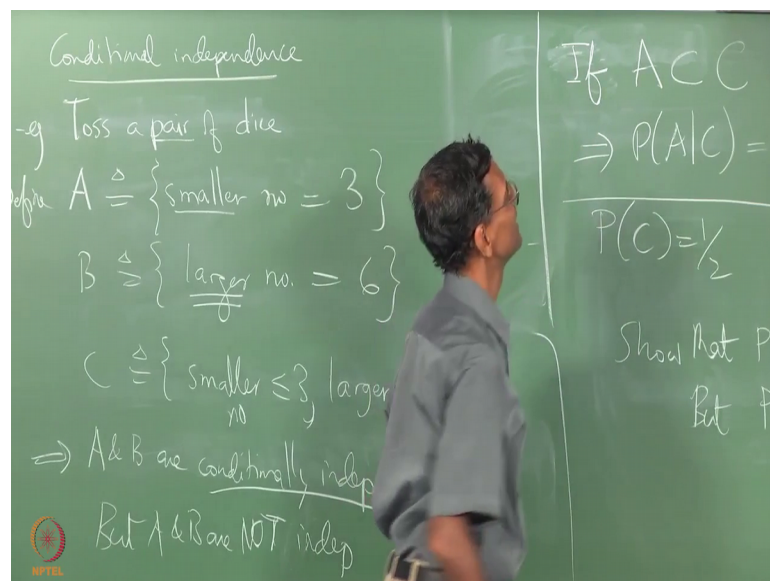 Conditional independence
eg Toss a pair of dice
Define A ≜ {smaller no = 3}
B ≜ {larger no. = 6}
C ≜ {smaller ≤ 3, larger
no
⇒ A & B are conditionally indep
But A & B are NOT indep
If A ⊂ C
⇒ P(A|C) =
P(C) = 1/2
Show that P
But P
NPTEL